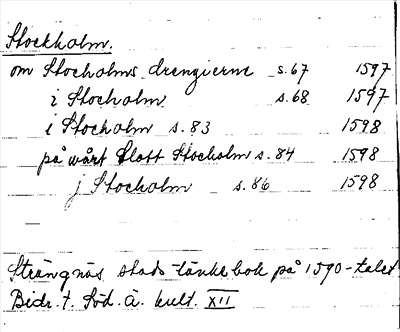 Stockholm.
om Stocholms drengierne s.67 1597
i Stocholm s.68 1597
i Stocholm s.83 1598
på wårt Slott Stocholm s.84 1598
j Stocholm s.86 1598
Strängnäs stads tänkebok på 1590-talet
Bidr. t. Söd. ä. kult. XII